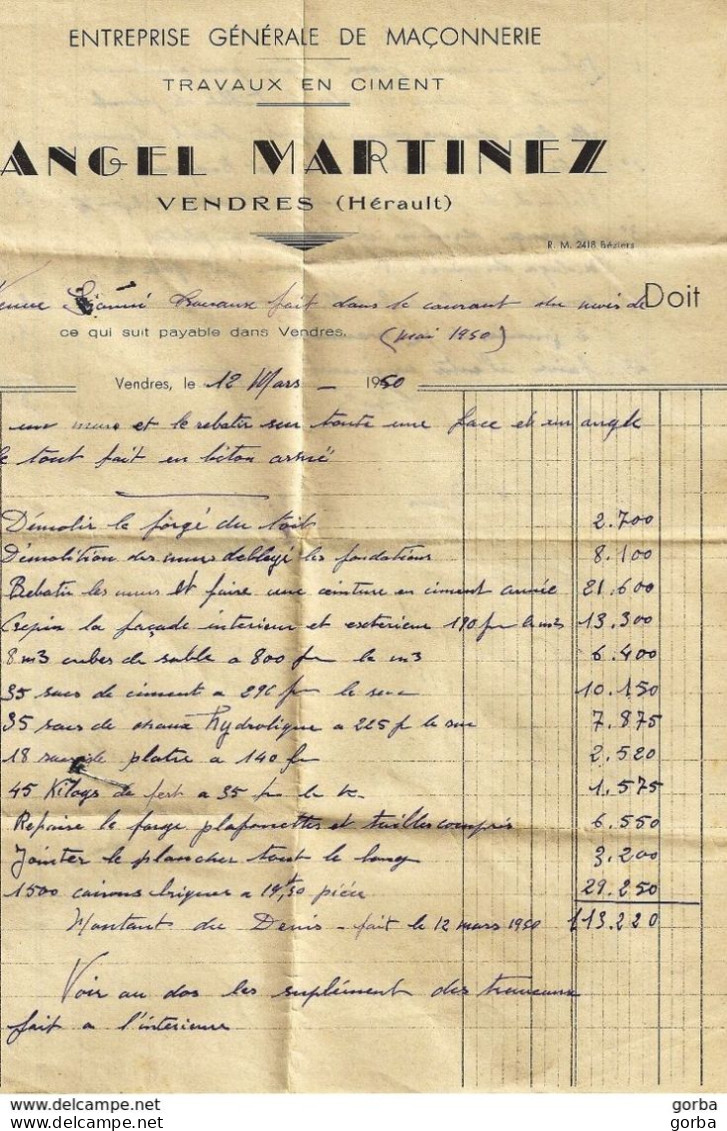 ENTREPRISE GÉNÉRALE DE MAÇONNERIE
TRAVAUX EN CIMENT
ANGEL MARTINEZ
VENDRES (Hérault)
R. M. 2418 Béziers
travaux fait dans le courant du mois de Doit
ce qui suit payable dans Vendres. (mai 1950)
Vendres, le 12 Mars 1950
un murs et le rebatir sur toute une face et un angle
le tout fait en béton armé
Démolir le forgé du toit 2.700
Démolition des murs deblayé les fondations 8.100
Rebatir les murs et faire une ceinture en ciment armée 21.600
Crepir la façade interieur et exterieur 190 fr le m2 13.300
8 m3 cubes de sable a 800 fr le m3 6.400
35 sacs de ciment a 290 fr le sac 10.150
35 sacs de chaux hydrolique a 225 f le sac 7.875
18 sacs de platre a 140 fr 2.520
45 Kilogs de fert a 35 fr le K. 1.575
Refaire le forgé plafonettes et tuilles compris 6.550
Jointer le plancher tout le long 3.200
1500 cairons briques a 19,50 pièce 29.250
Montant du Devis - fait le 12 mars 1950 113.220
Voir au dos les suplément des traveaux
fait a l'interieure
gorba
gorba